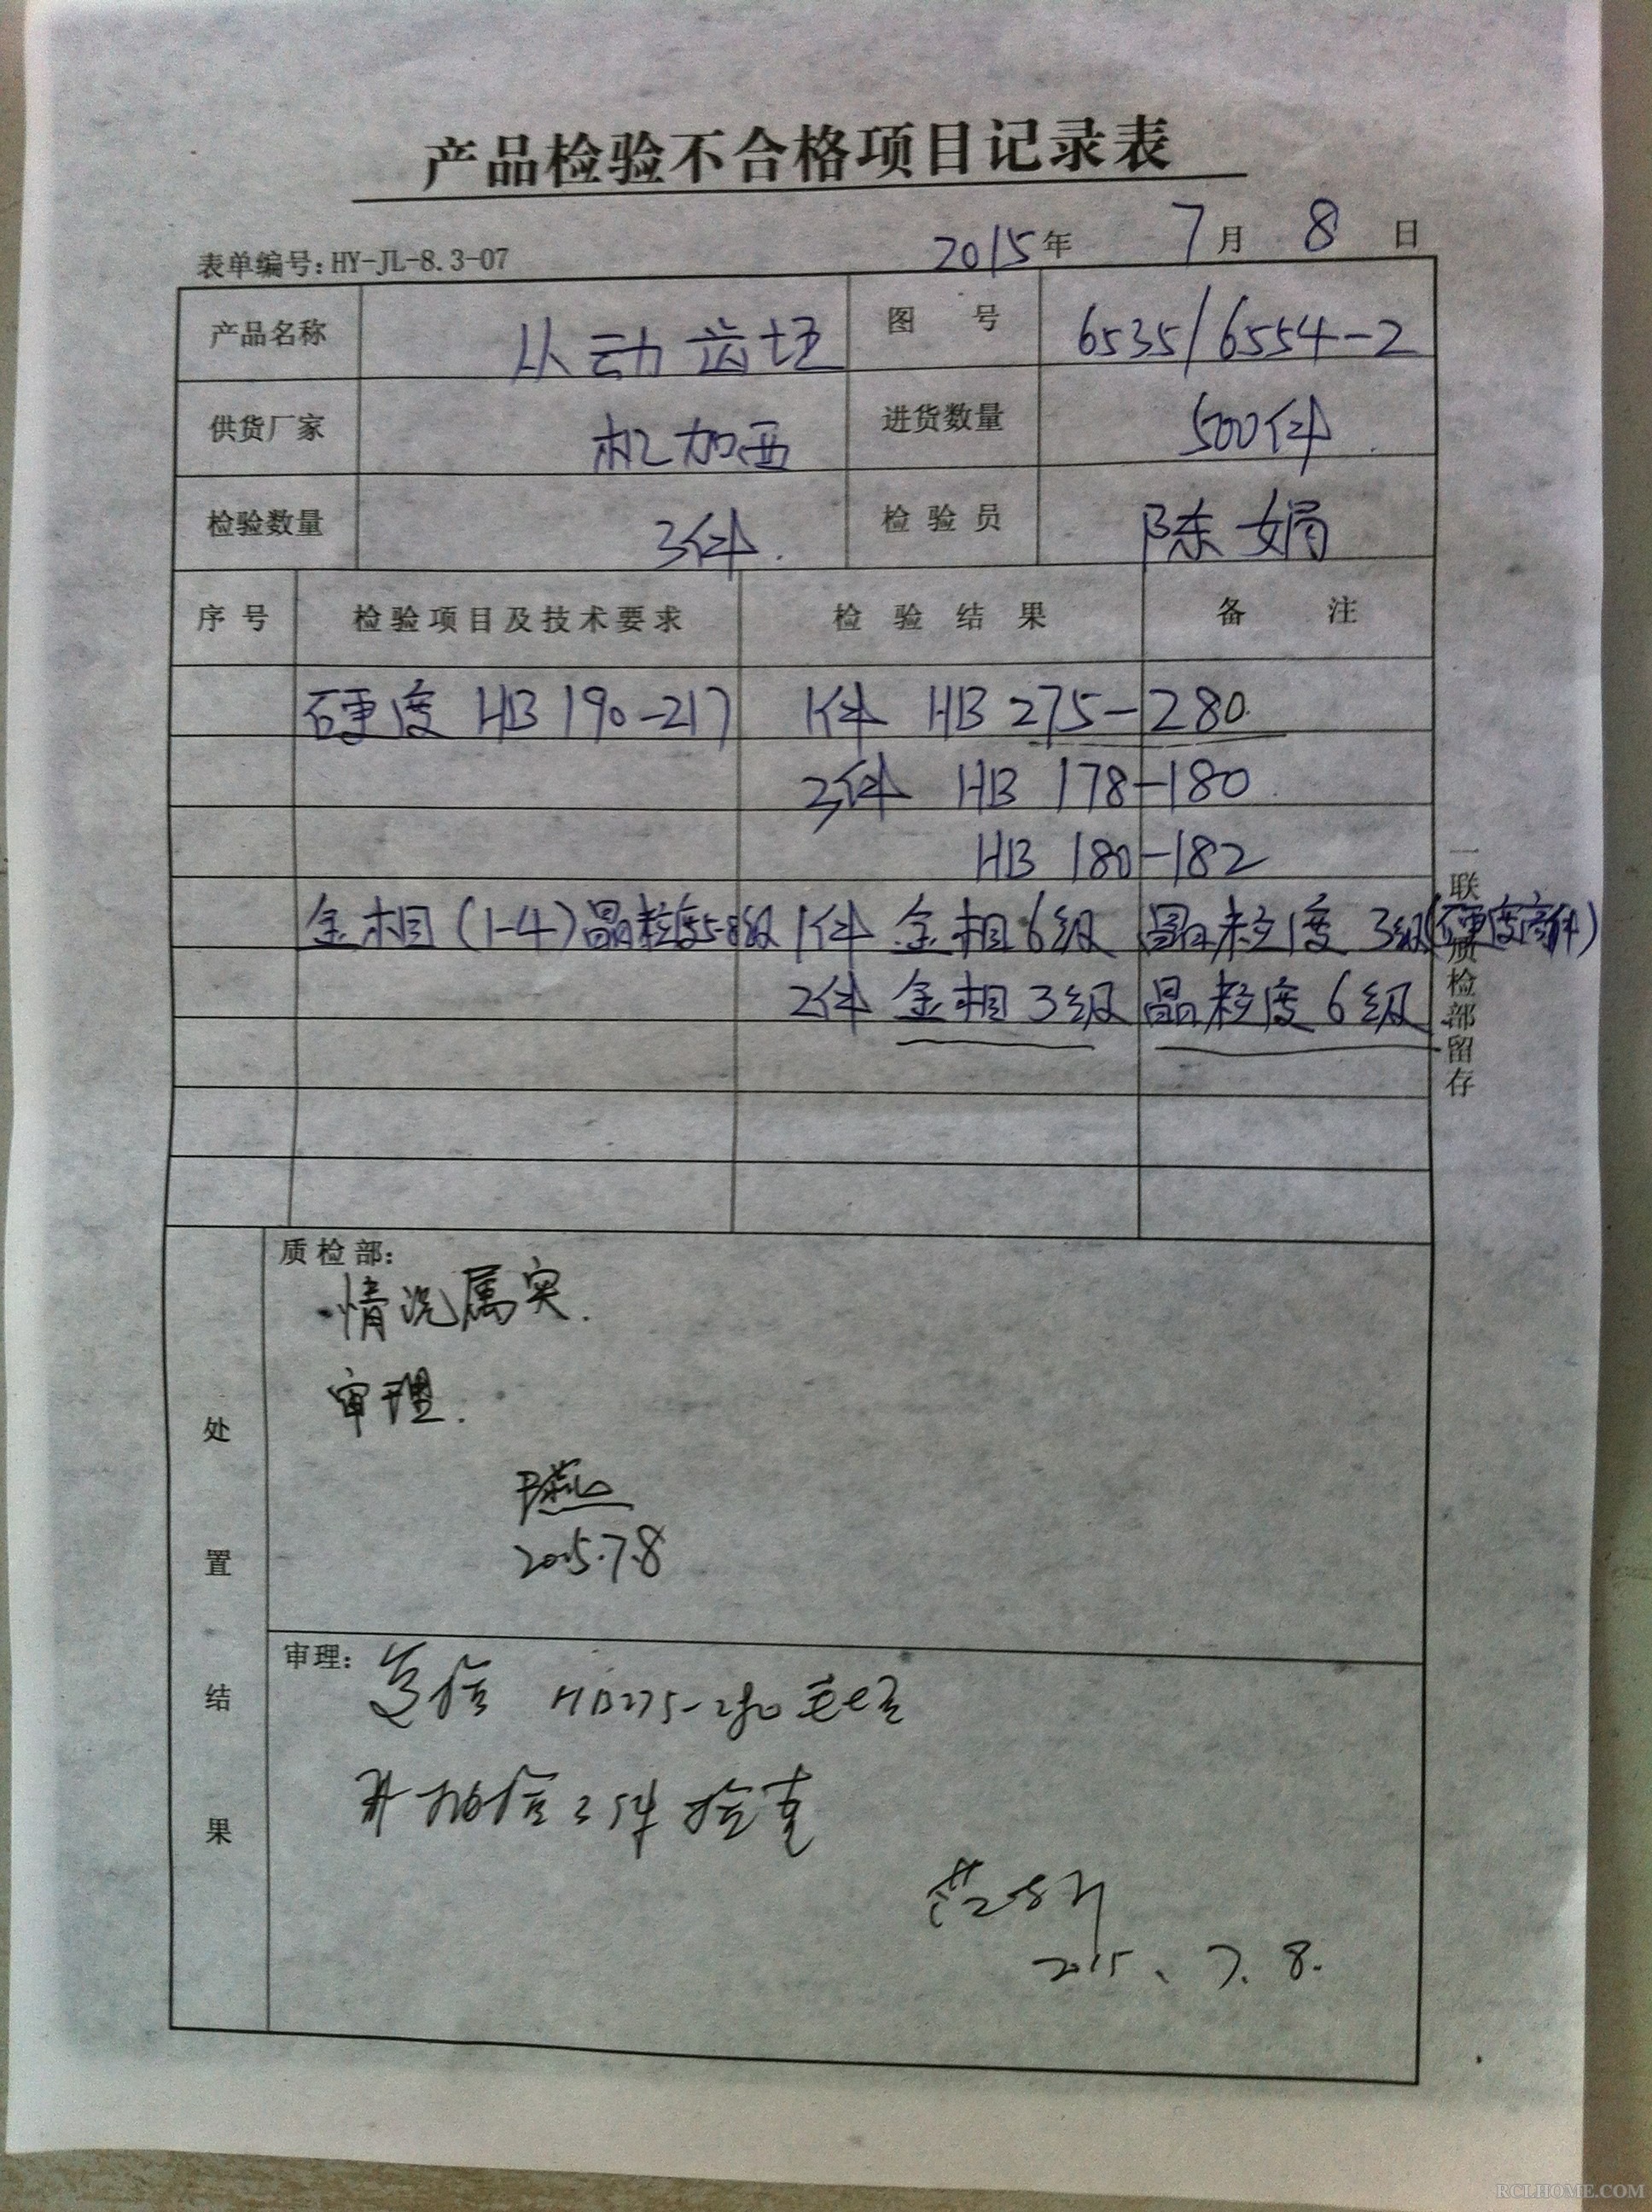 产品检验不合格项目记录表
表单编号：HY-JL-8.3-07 2015年 7月 8日
产品名称 从动齿坯 图号 6535/6554-2
供货厂家 机加西 进货数量 500件
检验数量 3件. 检验员 陈娟
序号 检验项目及技术要求 检验结果 备注
硬度 HB 190-217 1件 HB 275-280.
2件 HB 178-180
HB 180-182
金相(1-4)晶粒度5-8级 1件 金相6级 晶粒度 3级(硬度高件)
2件 金相3级 晶粒度 6级
一联质检部留存
处置结果
质检部：
情况属实.
审理.
2015.7.8
审理：
HB275-280毛坯
并抽信3件检查
2015、7.8.
RCLHOME.COM